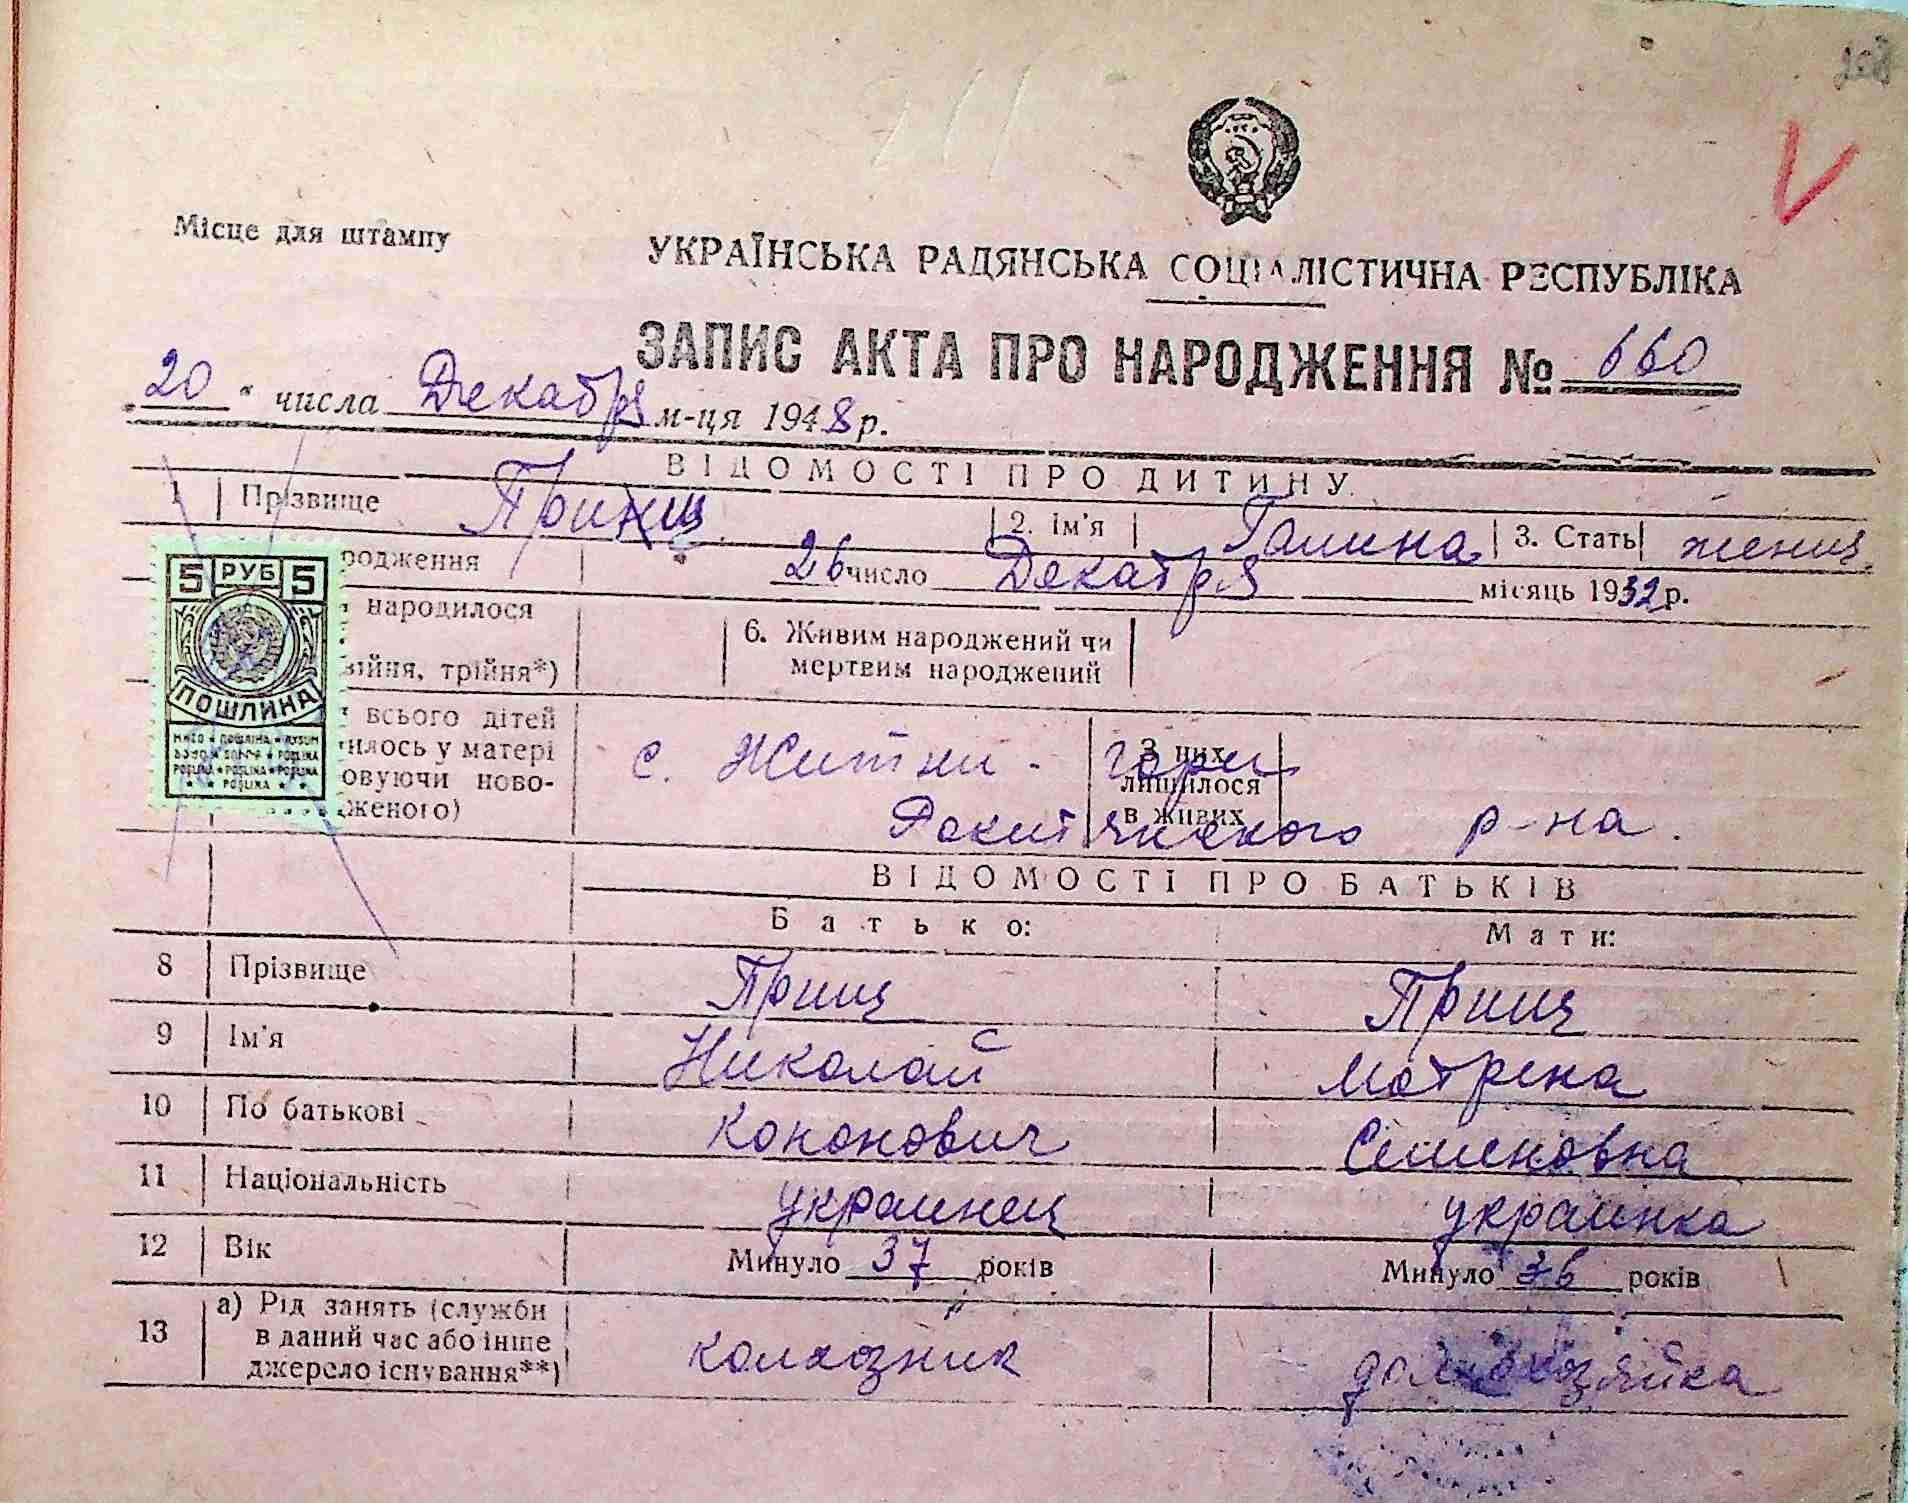 Місце для штампу
УКРАЇНСЬКА РАДЯНСЬКА СОЦІАЛІСТИЧНА РЕСПУБЛІКА
ЗАПИС АКТА ПРО НАРОДЖЕННЯ № 660
20 " числа Декабря м-ця 1948 р.
ВІДОМОСТІ ПРО ДИТИНУ
1 Прізвище 2. Ім'я Галина 3. Стать женщ.
родження 26 число Декабря місяць 1932 р.
народилося
війня, трійня*)
6. Живим народжений чи
мертвим народжений
5 РУБ 5
ПОШЛИНА
всього дітей
илось у матері
овуючи ново-
дженого)
З них
лишилося
в живих
с. Житни-Гори
Рокитянского р-на.
ВІДОМОСТІ ПРО БАТЬКІВ
Батько: Мати:
8 Прізвище Приищ Приищ
9 Ім'я Николай Матрена
10 По батькові Кононович Семеновна
11 Національність украинец украинка
12 Вік Минуло 37 років Минуло 36 років
13 а) Рід занять (служби
в даний час або інше
джерело існування**)
колхозник домохозяйка